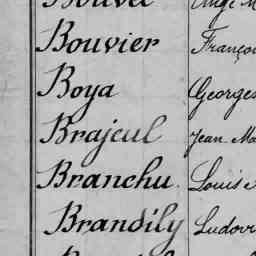 Bouvier Franço
Boya Georges
Brajeul Jean Ma
Branchu Louis
Brandily Ludovi